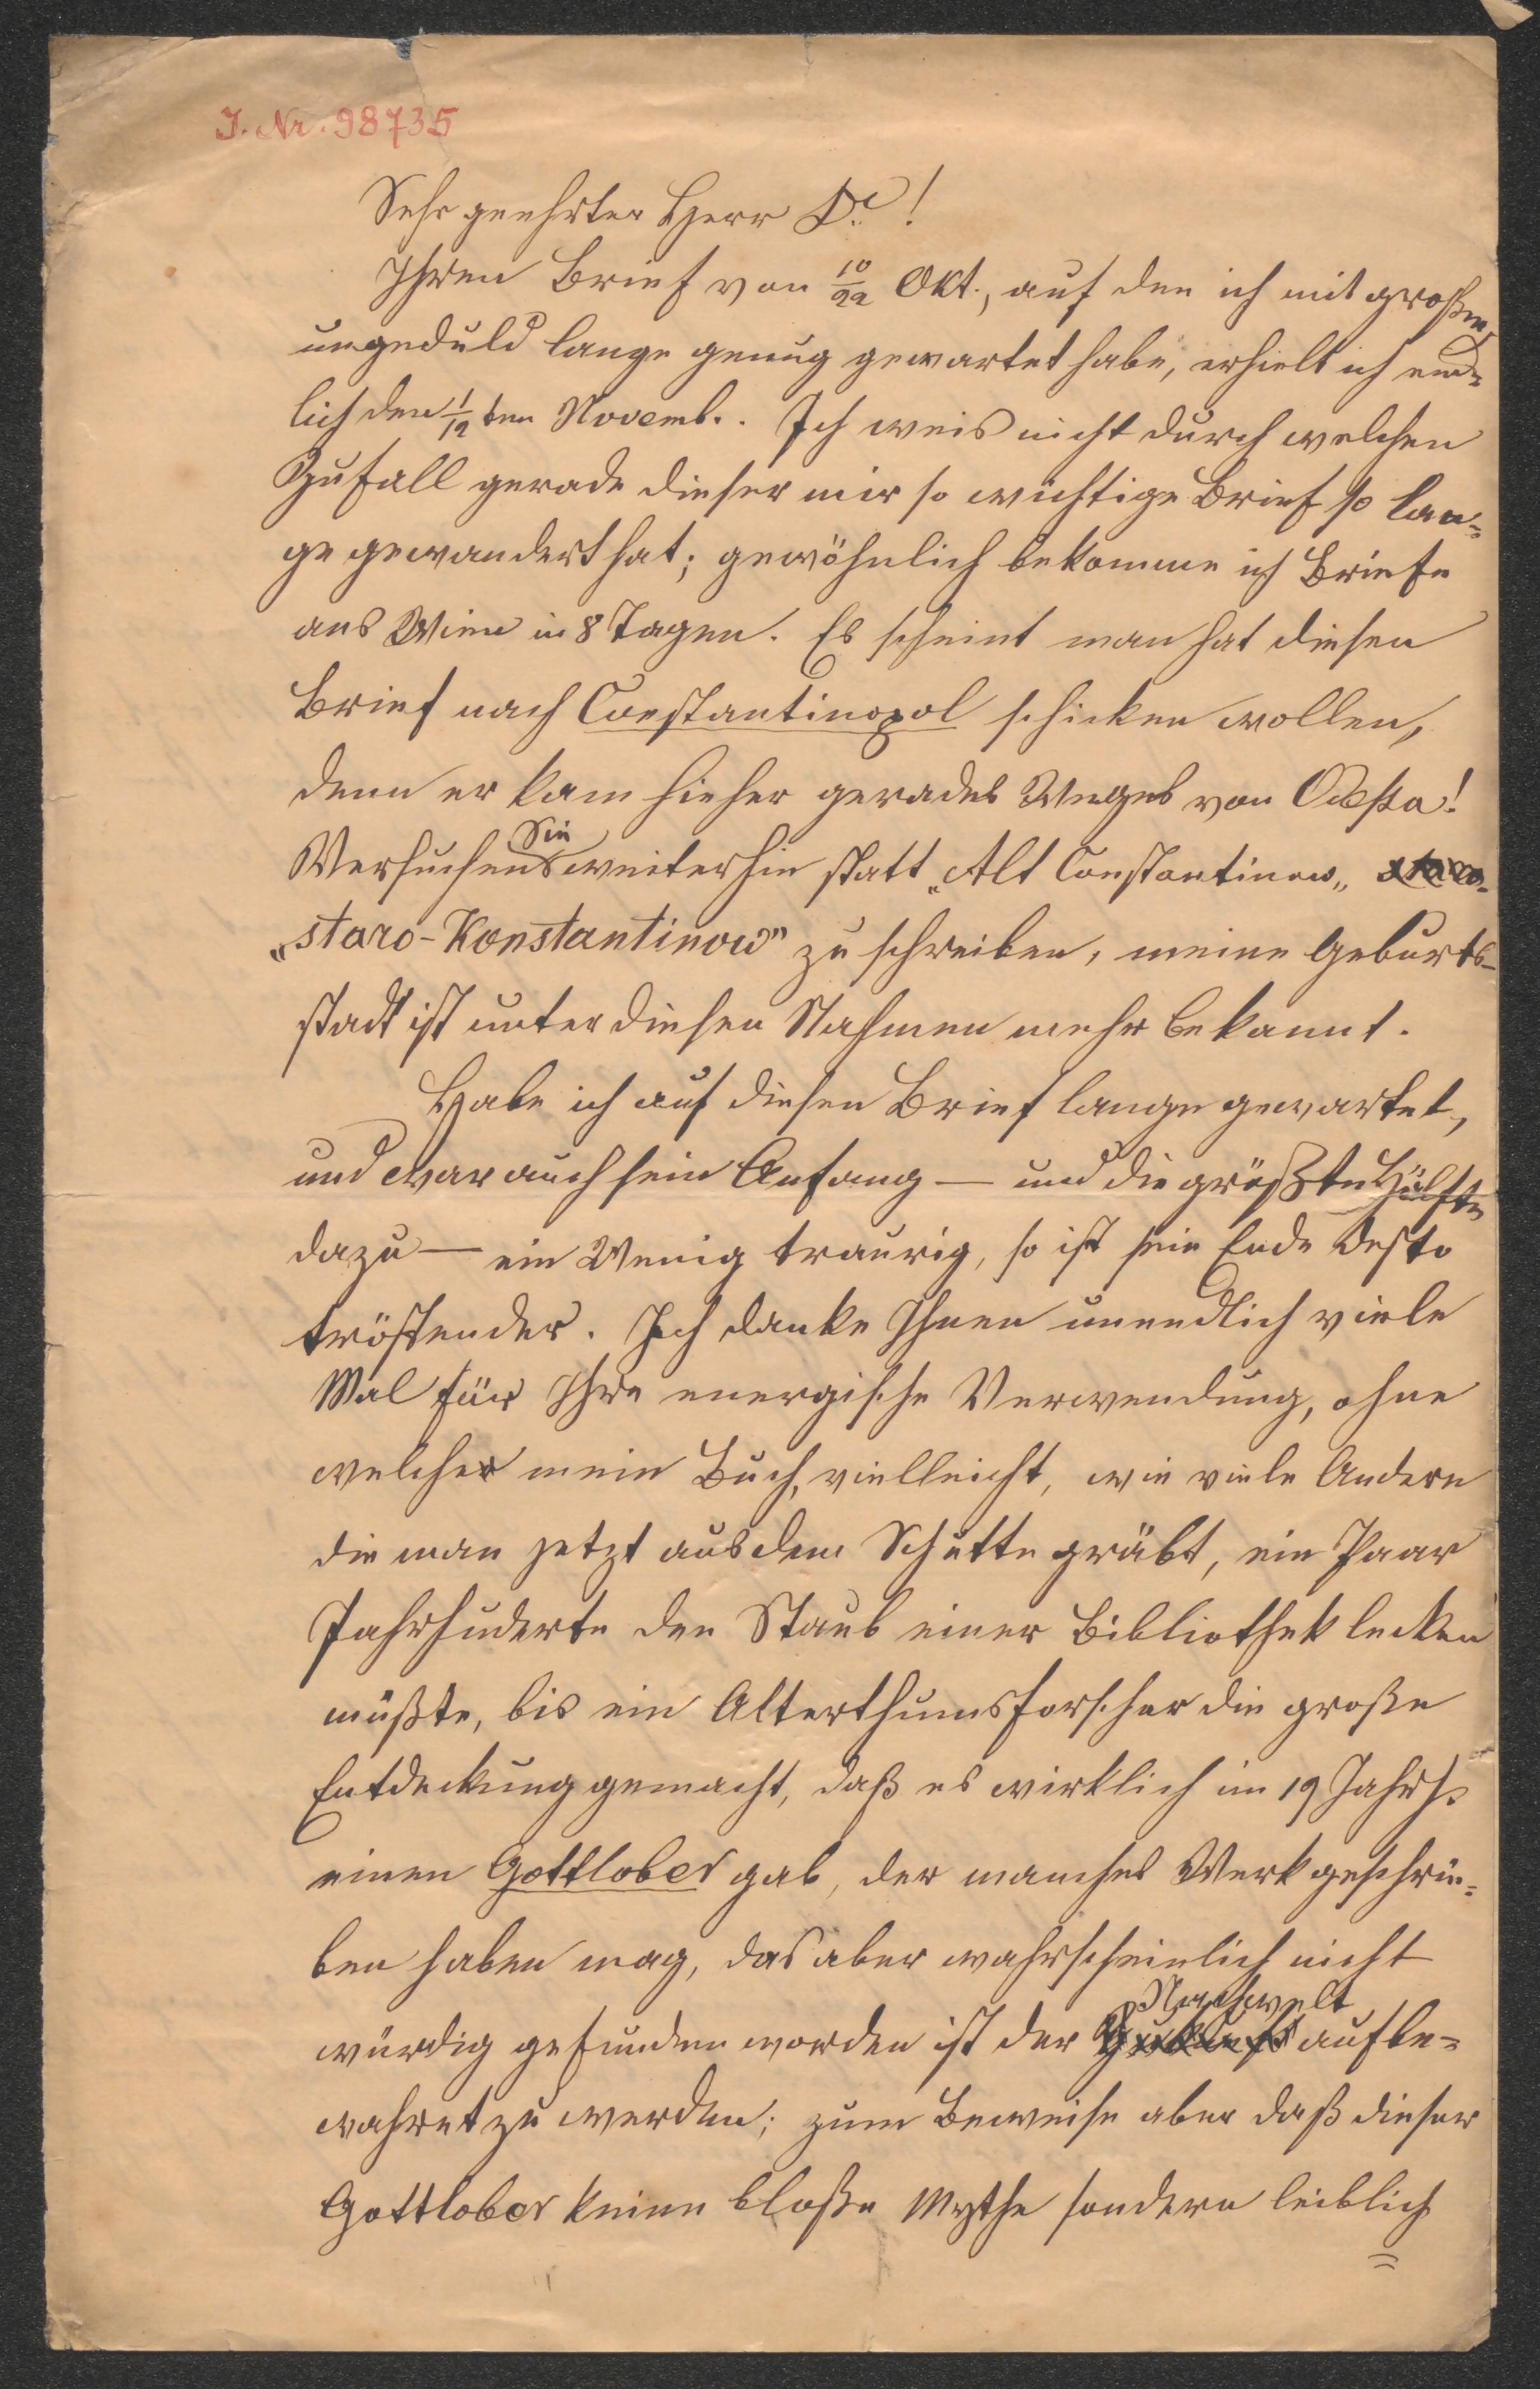 I. Nr. 98735
Sehr geehrter Herr Dr!
Ihren Brief von 10/22 Okt., auf den ich mit großer
ungeduld lange genug gewartet habe, erhielt ich end=
lich den 1/12 ten Novemb.. Ich weis nicht durch welchen
Zufall gerade dieser mir so wichtige Brief so lan=
ge gewandert hat; gewöhnlich bekomme ich Briefe
aus Wien in 8 Tagen. Es scheint man hat diesen
Brief nach Constantinopol schicken wollen,
denn er kam hieher gerades Weges von Odessa!
Versuchen Sie weiterhin statt „Alt Constantinow„
„staro-Konstantinow" zu schreiben, meine Geburts-
stadt ist unter diesen Nahmen mehr bekannt.
Habe ich auf diesen Brief lange gewartet,
und war auch sein Anfang — und die größte Hälfte
dazu — ein Wenig traurig, so ist sein Ende desto
tröstender. Ich danke Ihnen unendlich viele
Mal für Ihre energische Verwendung, ohne
welcher mein Buch, vielleicht, wie viele Andere
die man jetzt aus dem Schutte gräbt, ein Paar
Jahrhuderte den Staub einer Bibliothek lecken
müßte, bis ein Alterthumsforscher die große
Entdeckung gemacht, daß es wirklich im 19 Jahrh.
einen Gottlober gab, der manches Werk geschrie=
ben haben mag, das aber wahrscheinlich nicht
würdig gefunden worden ist der Nachwelt aufbe=
wahret zu werden; zum Beweise aber daß dieser
Gottlober keine bloße Mythe sondern leiblich